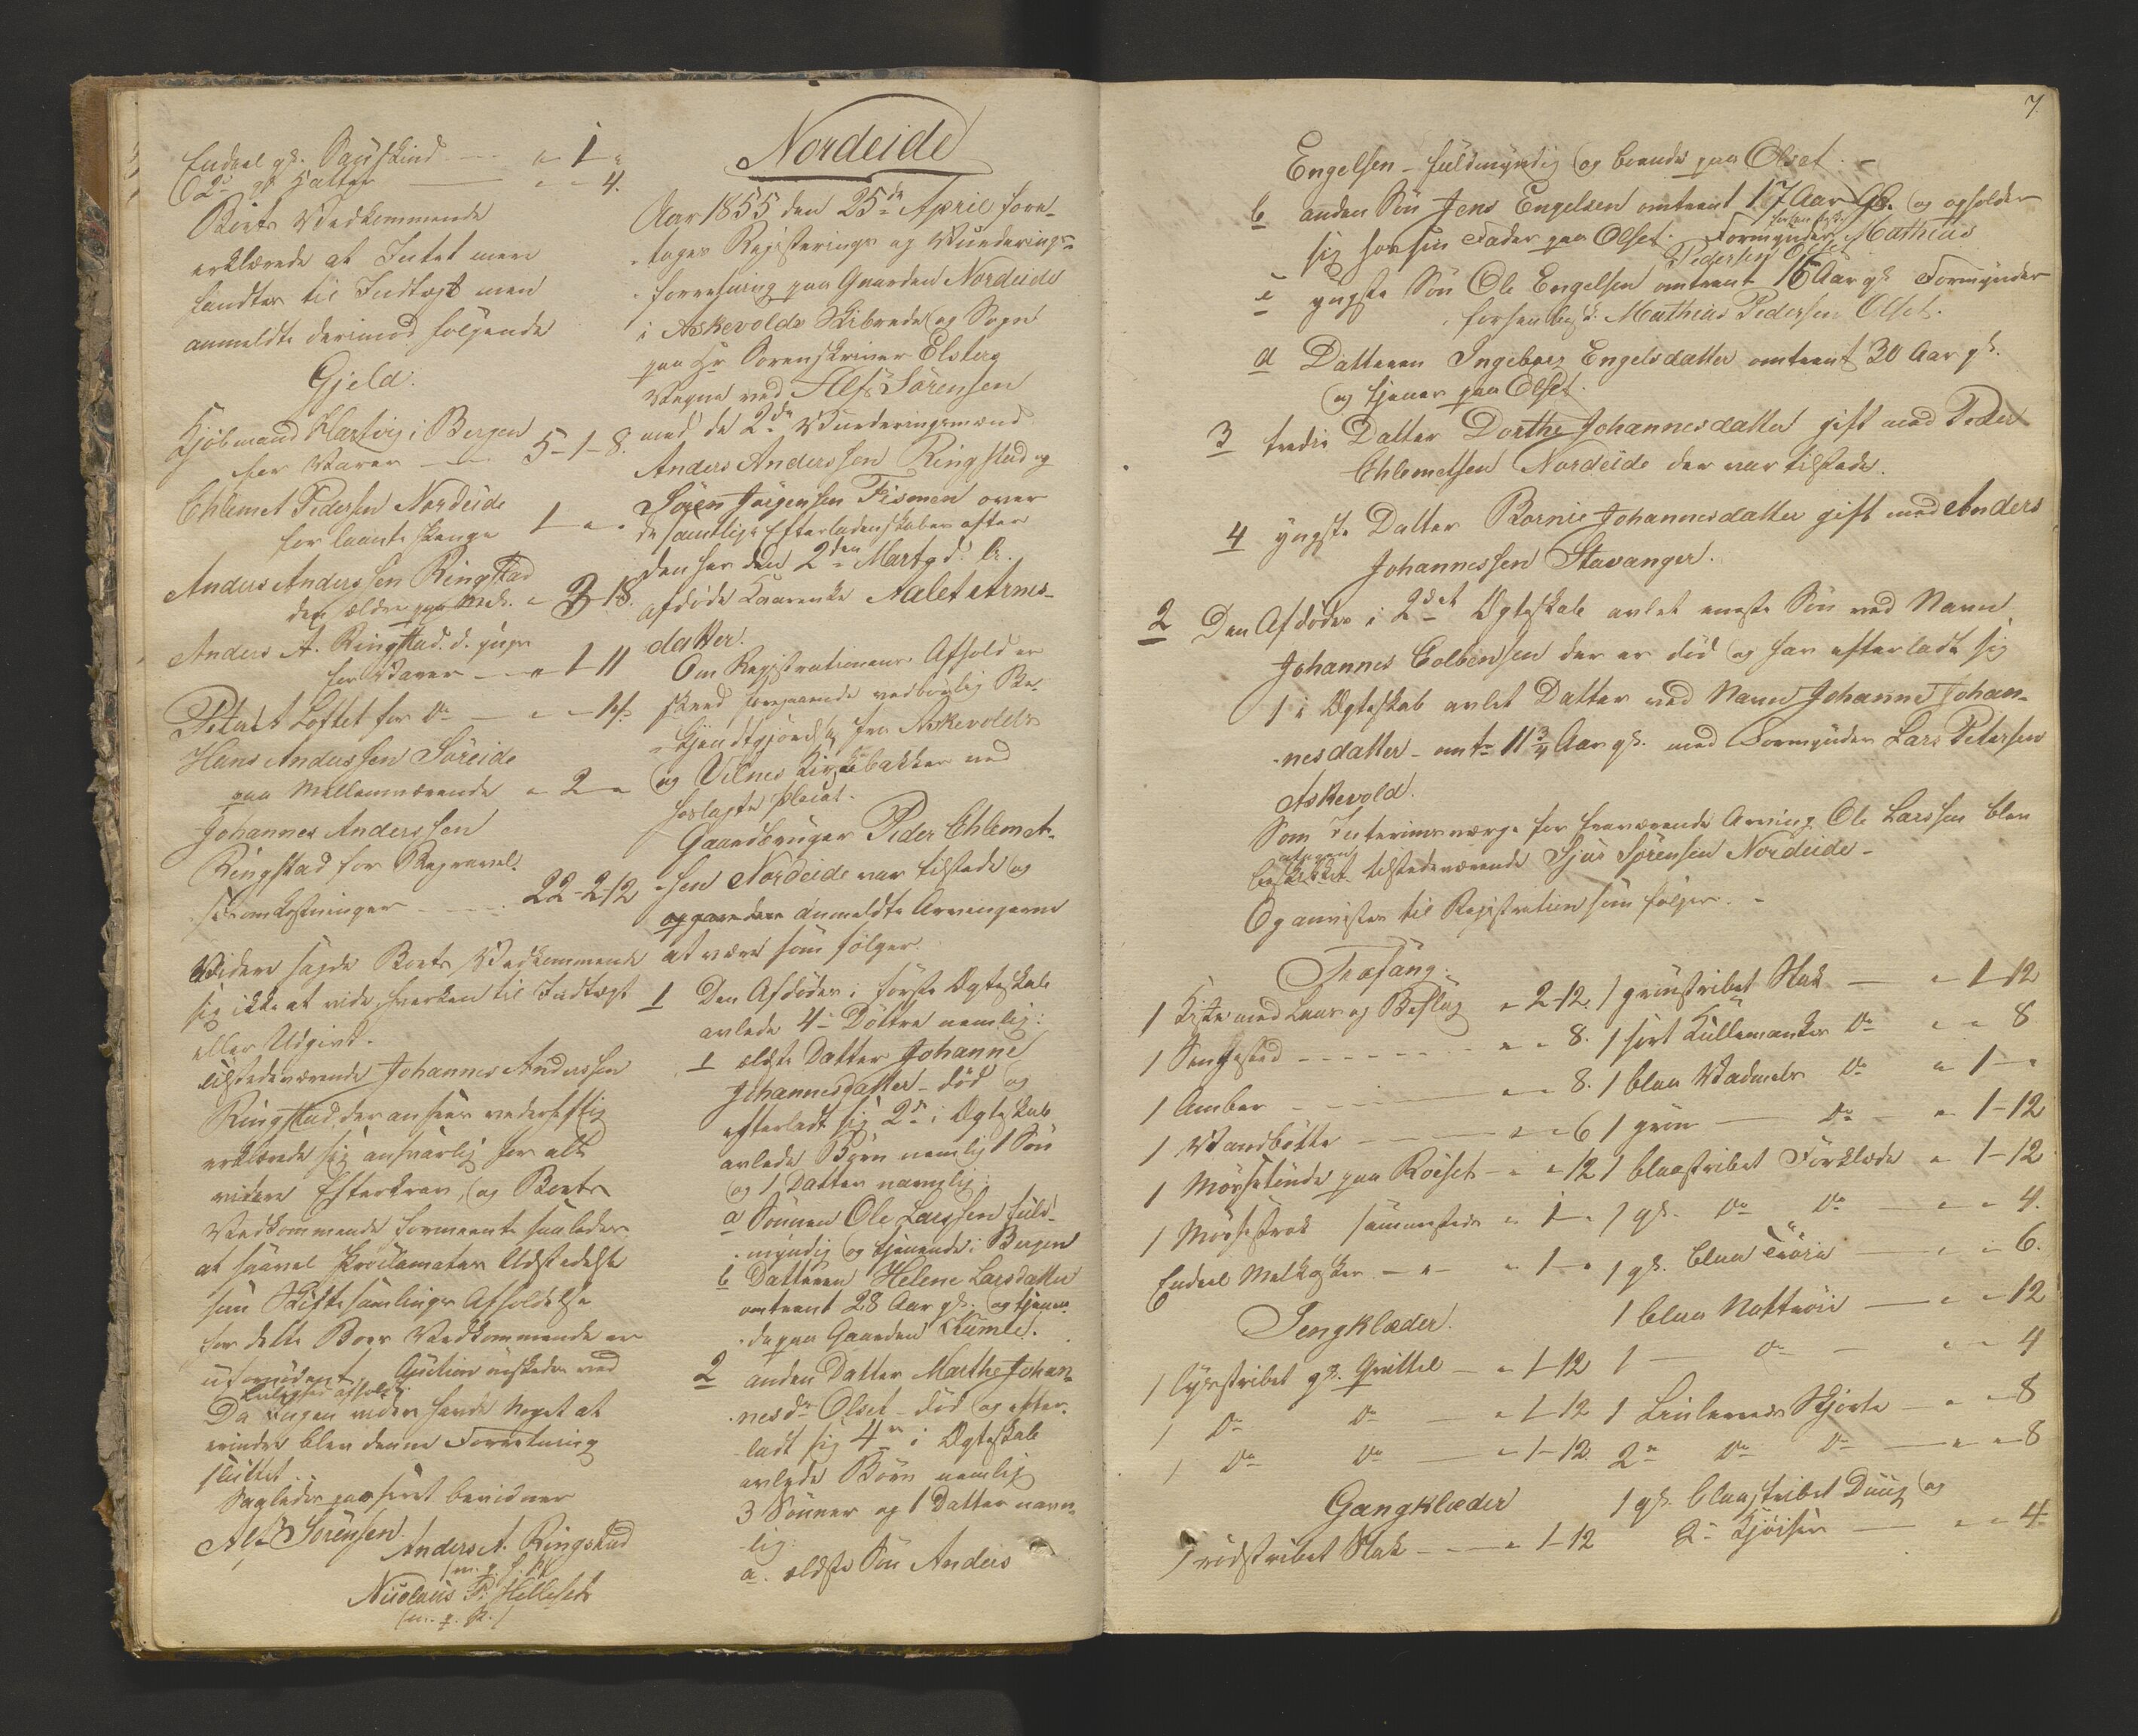 Endeel gl. Sauskind - " 1 "
2de gl Hatter - " " 4.
Boets Vedkommende
erklærede at Intet mere
fandtes til Indtægt men
anmeldte derimod følgende
Gjeld.
Kjøbmand Hartvig i Bergen
for Varer - 5-1-8.
Ehlemet Pedersen Nordeide
for laante Penge 1 " "
Anders Anderssen Ringstad
den ældre paa
Anders A. Ringstad d. yngre
for Varer - " 1-11
Loftet for Do - " " 14.
Hans Anderssen Søreide
paa Mellemværende " 2 "
Johannes Anderssen
Ringstad for Begravel-
sesomkostninger - 22-2-12
Videre sagde Boets Vedkommende
sig ikke at vide, hverken til Indtægt
eller Udgivt.
Tilstedeværende Johannes Anderssen
Ringstad, der ansees vederheftig
erklærede sig ansvarlig for alle
videre Efterkrav, og Boets
Vedkommende formeente saaledes
at saavel Proclamatas Udstedelse
som Skiftesamlings Afholdelse
for dette Boes Vedkommende er
ufornødent, Auction ønskedes ved
Leilighed afholdt.
Da Ingen videre havde Noget at
erindre blev denne Forretning
sluttet.
Saaledes passeret bevidner
Alf Sørensen.
Anders A. Ringstad
(m. p. P.)
Nicolaus P. Hellesets
(m. p. P.)
Nordeide
Aar 1855 den 25de April fore-
toges Registerings og Vurderings-
forretning paa Gaarden Nordeide
i Askevolds Skibrede og Sogn
paa Hr Sorenskriver Elsters
Vegne ved Alf Sørensen
med de 2de Vurderingsmænd
Anders Anderssen Ringstad og
Søren Jørgensen Fismen over
de samtlige Efterladenskaber efter
den her den 2den Marts d. A.
afdøde Kaarenke Aalet Arnes-
datter.
Om Registrationens Afhold er
skeed foregaaende vedbørlig Be-
kjendtgjørelse fra Askevolds
og Vilnes Kirkebakker ved
forlagte Placat.
Gaardbruger Peder Ehlemet-
sen Nordeide var tilstede og
opgav den anmeldte Arvingerne
at være som følger.
1 Den Afdødes i første Ægteskab
avlede 4re Døttre nemlig:
1 ældste Datter Johanne
Johannesdatter - død og
efterladt sig 2de i Ægteskab
avlede Børn nemlig 1 Søn
og 1 Datter navnlig:
a Sønnen Ole Larssen fuld-
myndig og tjenende i Bergen
b Datteren Helene Larsdatter
omtrent 28 Aar gl. og tjenen-
de paa Gaarden Kumle.
2 anden Datter Marthe Johan-
nesdr Olset - død og efter-
ladt sig 4re i Ægteskab
avlede Børn nemlig
3 Sønner og 1 Datter navn-
lig:
a. ældste Søn Anders
7.
Engelsen - fuldmyndig og boende paa Olset. -
b anden Søn Jens Engelsen omtrent 17 Aar gl. og opholder
sig hos sin Fader paa Olset. Formynder Mathias
Pedersen Olset
c yngste Søn Ole Engelsen omtrent 16 Aar gl. Formynder
Mathias Pedersen Olset.
d Datteren Ingeborg Engelsdatter omtrent 30 Aar gl.
og tjener paa Olset.
3 tredie Datter Dorthe Johannesdatter gift med Peder
Ehlemetsen Nordeide der var tilstede.
4 yngste Datter Bornie Johannesdatter gift med Anders
Johannessen Stavanger.
2 Den Afdødes i 2det Ægteskab avlet eneste Søn ved Navn
Johannes Colbensen der er død og har efterladt sig
1 i Ægteskab avlet Datter ved Navn Johanne Johan-
nesdatter - omtr 11 3/4 Aar gl. med Formynder Lars Petersen
Askevold.
Som Interimsværge for fraværende Arving Ole Larssen blev
tilstedeværende Sjur Sørensen Nordeide -
Og anvistes til Registration som følger. -
Træfang.
1 Kiste med Laas og Beslag " 2-12.
1 Sengested - " " 8.
1 Ambar - " " 8.
1 Vandbøtte - " " 6
1 Mørsetønde paa Roiset - " " 12
1 Mørsetrok sammesteds " 1 "
Endeel Melkesker - " - " 1 "
Sengklæder.
1 lysstribet gl. Qvittel - " 1-12
1 Do Do - " 1-12
1 Do Do - " 1-12.
Gangklæder
1 rødstribet Stak - " 1-12
1 grønstribet Stak - " 1-12
1 sort Kullemankes Do " " 8
1 blaa Vadmels Do " 1 - "
1 grøn - Do - " 1-12
1 blaastribet Forklæde " 1-12
1 gl. Do Do - " " 4.
1 gl. blaa Trøie - " " 6.
1 blaa Nattrøie - " " 12
1 - Do - " " 4
1 Linlereds Skjorte - " " 8
2de Do Do - " " 8
1 gl. blaastribet Duug og
2de - " " 4